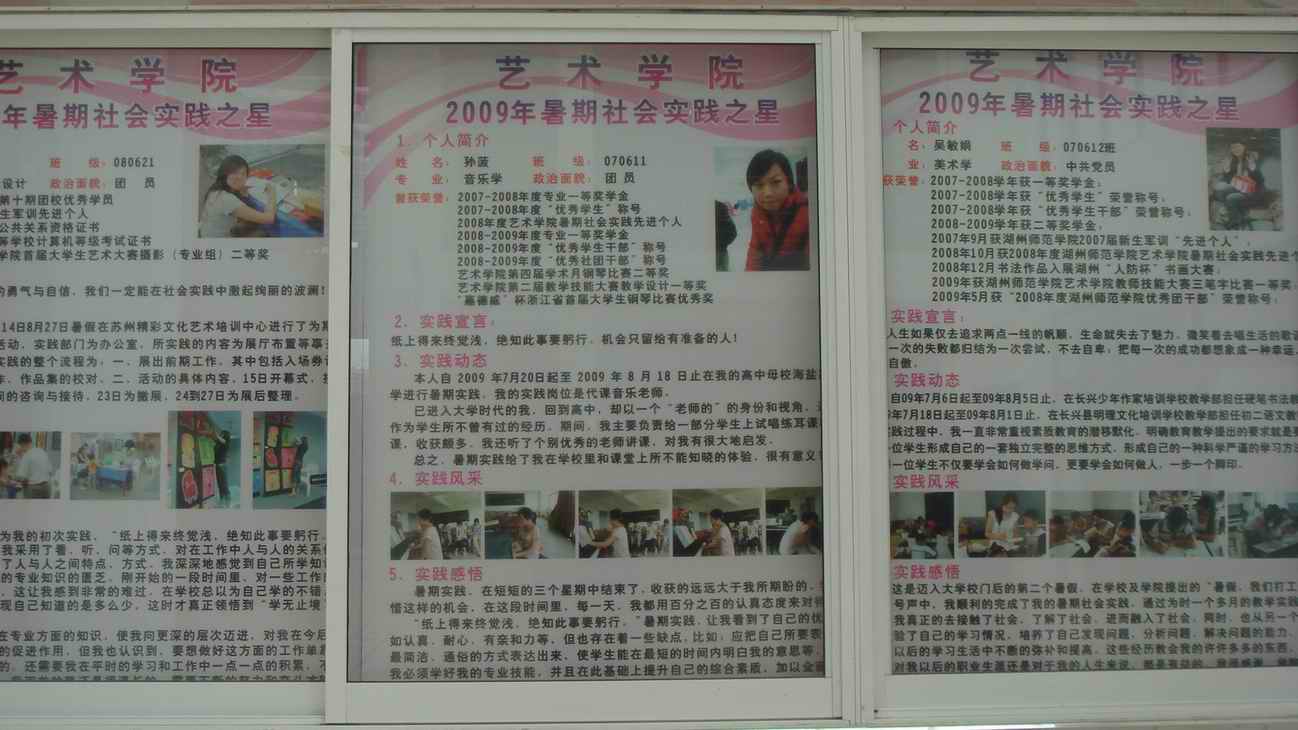 艺术学院
年暑期社会实践之星
班 级：080621
设计 政治面貌：团 员
第十期团校优秀学员
生军训先进个人
公共关系资格证书
等学校计算机等级考试证书
学院首届大学生艺术大赛摄影（专业组）二等奖
的勇气与自信，我们一定能在社会实践中激起绚丽的波澜！
14日8月27日暑假在苏州精彩文化艺术培训中心进行了为期
活动，实践部门为办公室，所实践的内容为展厅布置等事
实践的整个流程为：一、展出前期工作，其中包括入场券
作、作品集的校对。二、活动的具体内容，15日开幕式，
间的咨询与接待，23日为撤展，24到27日为展后整理。
为我的初次实践，“纸上得来终觉浅，绝知此事要躬行，
我采用了看、听、问等方式，对在工作中人与人的关系
了人与人之间特点、方式，我深深地感觉到自己所学知
的专业知识的匮乏。刚开始的一段时间里，对一些工作
，这让我感到非常的难过，在学校总以为自己学的不错，
现自己知道的是多么少，这时才真正领悟到“学无止境
在专业方面的知识，使我向更深的层次迈进，对我在今后
的促进作用，但我也认识到，要想做好这方面的工作单
的，还需要我在平时的学习和工作中一点一点的积累，不
艺术学院
2009年暑期社会实践之星
1. 个人简介
姓 名：孙菠 班 级：070611
专 业：音乐学 政治面貌：团 员
曾获荣誉：2007-2008年度专业一等奖学金
2007-2008年度“优秀学生”称号
2008年度艺术学院暑期社会实践先进个人
2008-2009年度专业一等奖学金
2008-2009年度“优秀学生干部”称号
2008-2009年度“优秀社团干部”称号
艺术学院第四届学术月钢琴比赛二等奖
艺术学院第二届教学技能大赛教学设计一等奖
“嘉德威”杯浙江省首届大学生钢琴比赛优秀奖
2. 实践宣言：
纸上得来终觉浅，绝知此事要躬行，机会只留给有准备的人！
3. 实践动态
本人自 2009 年7月20日起至 2009 年 8 月 18 日止在我的高中母校海盐
学进行暑期实践，我的实践岗位是代课音乐老师。
已进入大学时代的我，回到高中，却以一个“老师的”的身份和视角，
作为学生所不曾有过的经历。期间，我主要负责给一部分学生上试唱练耳课
课，收获颇多，我还听了个别优秀的老师讲课，对我有很大地启发。
总之，暑期实践给了我在学校里和课堂上所不能知晓的体验，很有意义
4. 实践风采
5. 实践感悟
暑期实践，在短短的三个星期中结束了，收获的远远大于我所期盼的，
惜这样的机会，在这段时间里，每一天，我都用百分之百的认真态度来对
“纸上得来终觉浅，绝知此事要躬行。”暑期实践，让我看到了自己的优
如认真、耐心、有亲和力等，但也存在着一些缺点，比如：应把自己所要表
最简洁、通俗的方式表达出来，使学生能在最短的时间内明白我的意思等，
我必须学好我的专业技能，并且在此基础上提升自己的综合素质，加以全
艺术学院
2009年暑期社会实践之星
个人简介
名：吴敏娟 班 级：070612班
业：美术学 政治面貌：中共党员
获荣誉：2007-2008学年获一等奖学金；
2007-2008学年获“优秀学生”荣誉称号；
2007-2008学年获“优秀学生干部”荣誉称号；
2008-2009学年获二等奖学金；
2007年9月获湖州师范学院2007届新生军训“先进个人”；
2008年10月获2008年度湖州师范学院艺术学院暑期社会实践先进个
2008年12月书法作品入展湖州“人防杯”书画大赛；
2009年获湖州师范学院艺术学院教师技能大赛三笔字比赛一等奖；
2009年5月获“2008年度湖州师范学院优秀团干部”荣誉称号；
实践宣言：
人生如果仅去追求两点一线的帆顺，生命就失去了魅力，微笑着去唱生活的歌
一次的失败都归结为一次尝试，不去自卑；把每一次的成功都想象成一种幸运，
自傲。
实践动态
自09年7月6日起至09年8月5日止，在长兴少年作家培训学校教学部担任硬笔书法
年7月18日起至09年8月1日止，在长兴县明理文化培训学校教学部担任初二语文
践过程中，我一直非常重视素质教育的潜移默化，明确教育教学提出的要求就是
位学生形成自己的一套独立完整的思维方式，形成自己的一种科学严谨的学习方
一位学生不仅要学会如何做学问，更要学会如何做人，一步一个脚印。
实践风采
实践感悟
这是迈入大学校门后的第二个暑假，在学校及学院提出的“暑假，我们打工
号声中，我顺利的完成了我的暑期社会实践，通过为时一个多月的教学实践
我真正的去接触了社会，了解了社会，进而融入了社会，同时，也从另一个
验了自己的学习情况，培养了自己发现问题、分析问题、解决问题的能力，
以后的学习生活中不断的弥补和提高，这些经历教会我的许许多多的东西，
对我以后的职业生涯还是对于我的人生来说，都是有益的